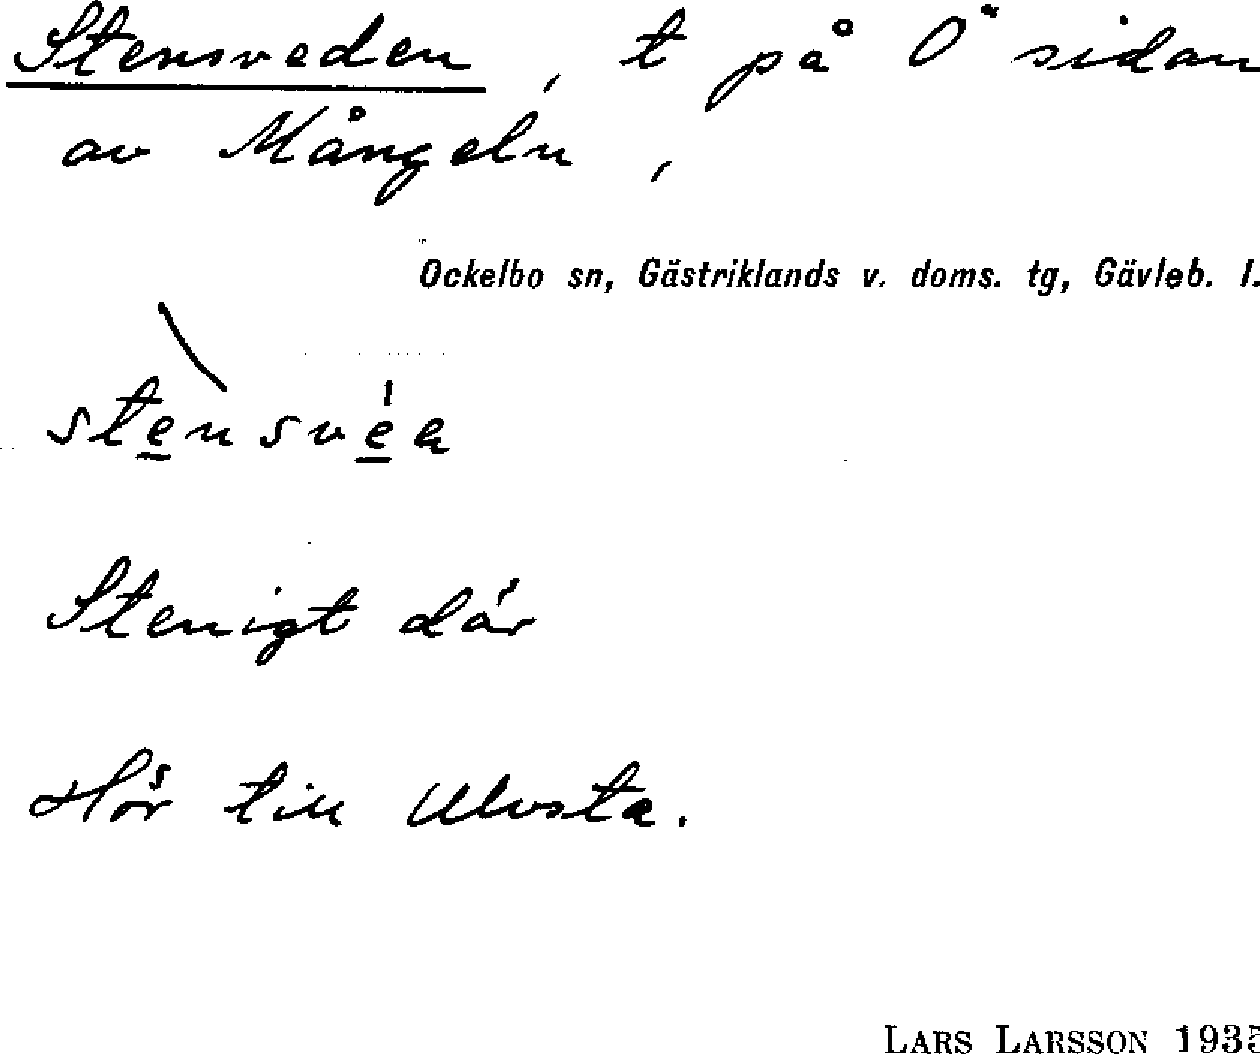 Stensveden, t på Ö sidan
av Mångeln,
Ockelbo sn, Gästriklands v. doms. tg, Gävleb. l.
stensvéa
Stenigt där
Hör till Ulvsta.
LARS LARSSON 1935